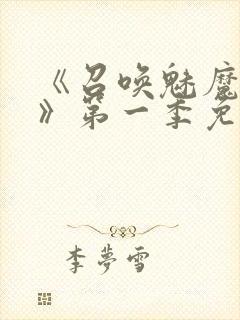 《召唤魅魔
》第一季免
李夢雪